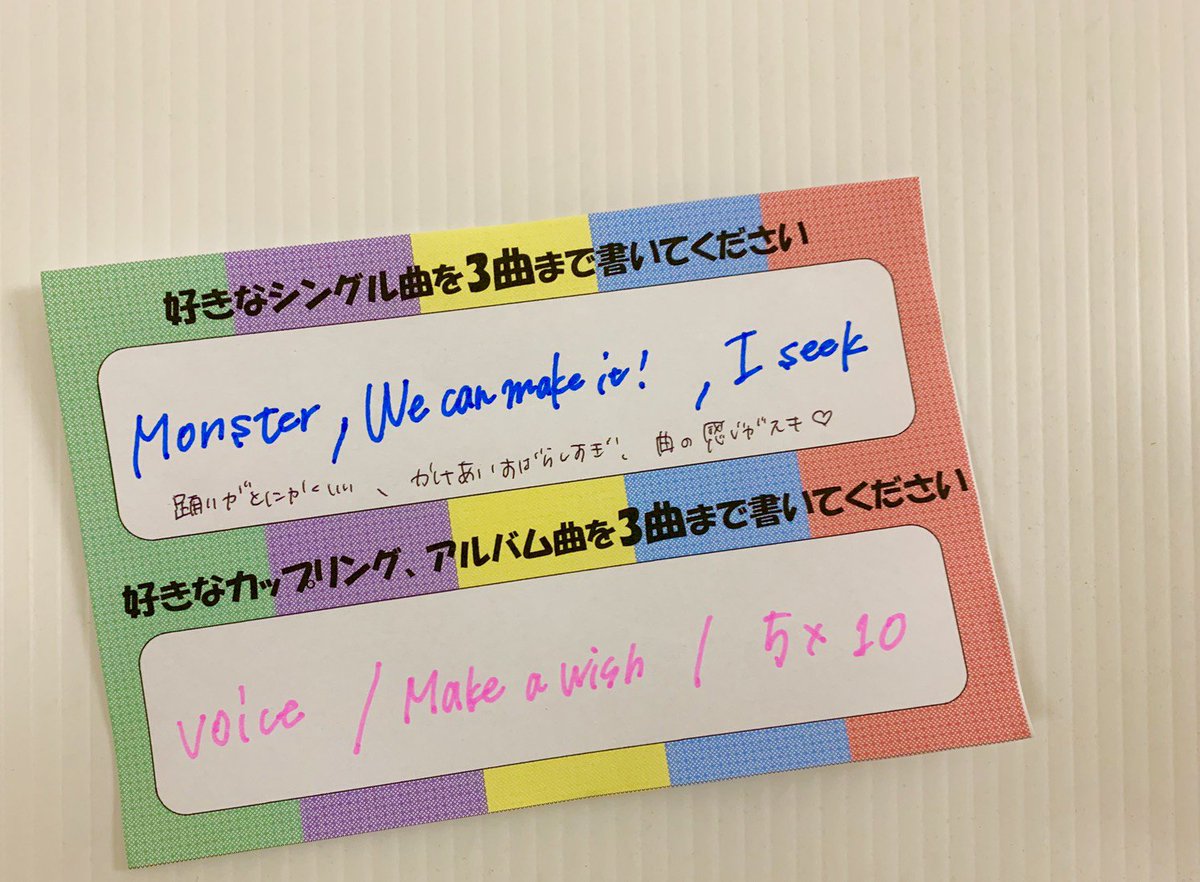 好きなシングル曲を3曲まで書いてください
Monster, We can make it! , I seek
踊りがとにかくいい、かけあいすばらしすぎ、曲の感じがスキ♡
好きなカップリング、アルバム曲を3曲まで書いてください
voice / Make a wish / 5×10